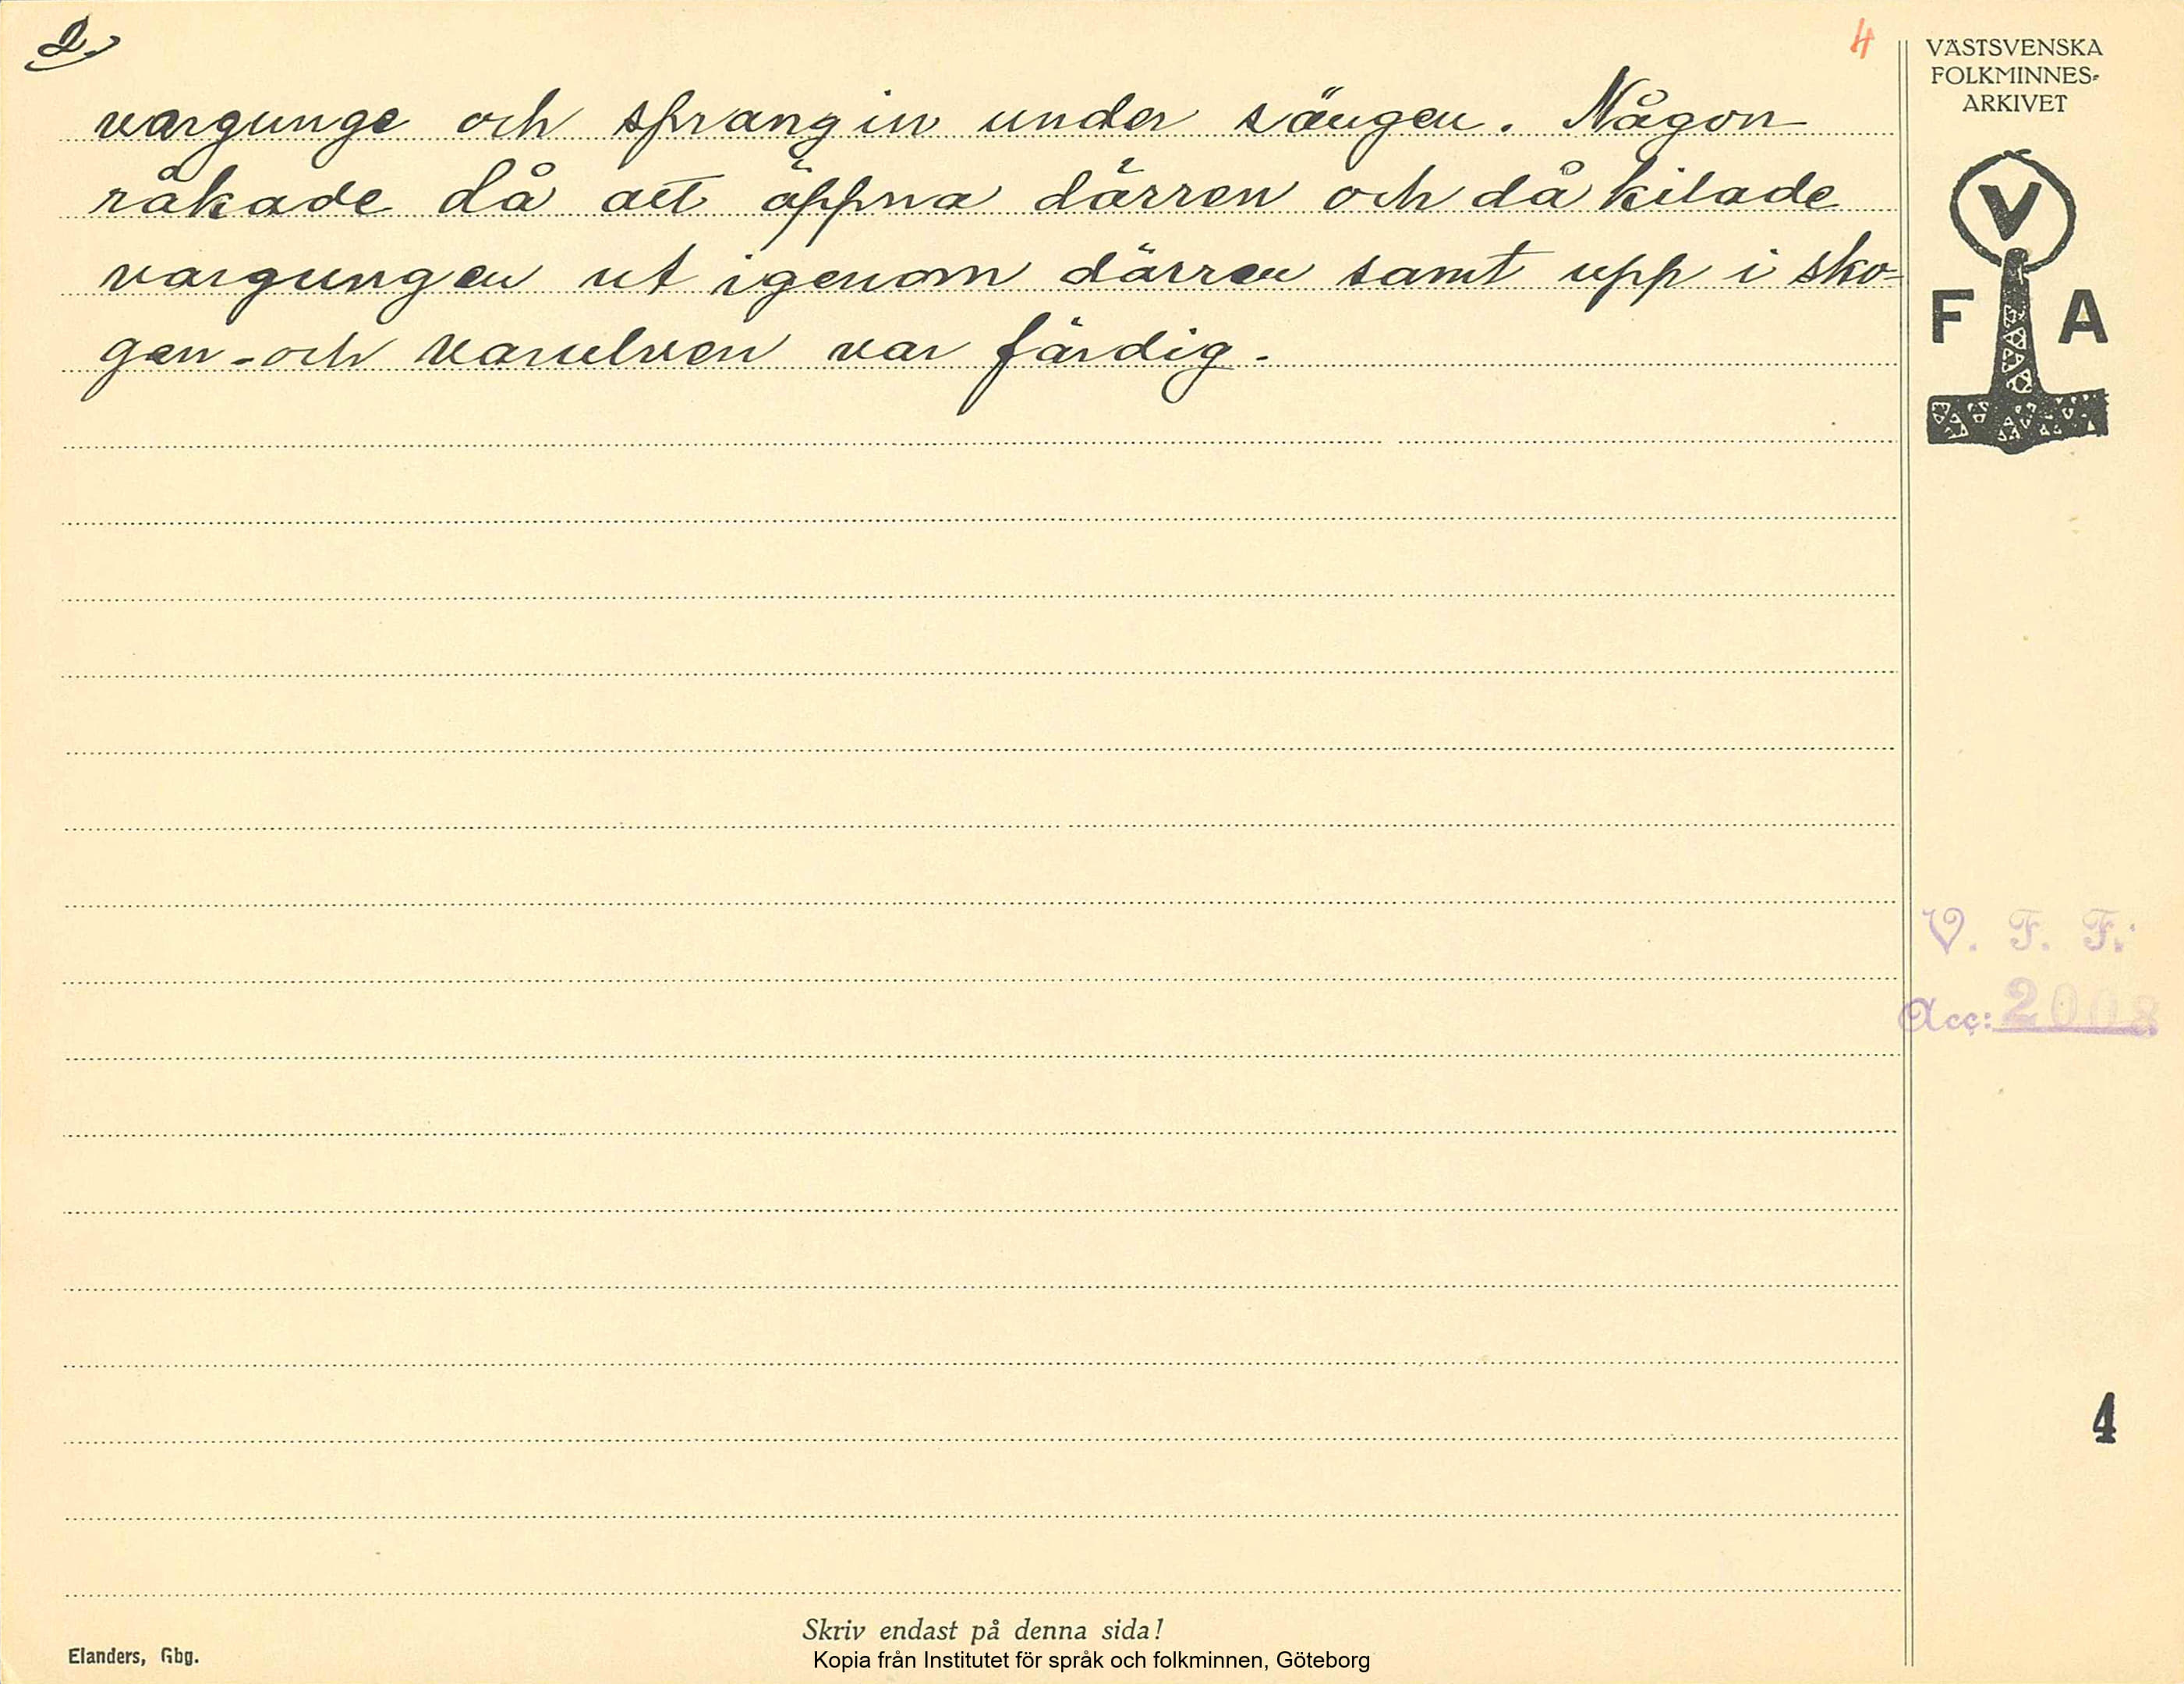 2,
4
vargunge och sprang in under sängen. Någon
råkade då att öppna dörren och då kilade
vargungen ut igenom dörren samt upp i sko-
gen - och varulven var färdig.
VÄSTSVENSKA
FOLKMINNES-
ARKIVET
V
F A
V. F. F.
Acc: 2008
4
Skriv endast på denna sida!
Elanders, Gbg.
Kopia från Institutet för språk och folkminnen, Göteborg